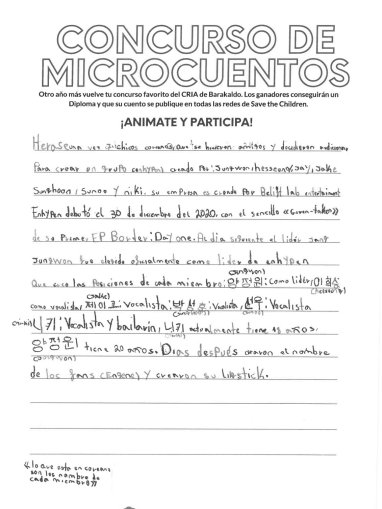 CONCURSO DE
MICROCUENTOS
Otro año más vuelve tu concurso favorito del CRIA de Barakaldo. Los ganadores conseguirán un
Diploma y que su cuento se publique en todas las redes de Save the Children.
¡ANIMATE Y PARTICIPA!
vez 7 chicos coreanos que se hicieron amigos y decidieron
Para crear un grupo enhypen creado por: Jungwon, heeseung, Jay, Jake
Sunghoon, Sunoo y niki. su empresa es creado por Belift lab entertaiment
Enhypen debutó el 30 de diciembre del 2020. con el sencillo «Given-taken»
de su primer EP Border: Day one. Al dia siguiente el lider
Jungwon fue elegido oficialmente como lider de enhypen
(Jungwon)
las posiciones de cada miembro: 양정원: como lider, 이희승
(Jake)
como vocalista, 제이크: Vocalista, 박성훈: Vocalista, 선우: Vocalista
니키: Vocalista y bailarin, 니키 actualmente tiene 18 años.
양정원 tiene 20 años. Dias después crearon el nombre
(Jungwon)
de los fans (Engene) y crearon su lightstick.
lo que esta en coreano
son los nombre de
cada miembro»